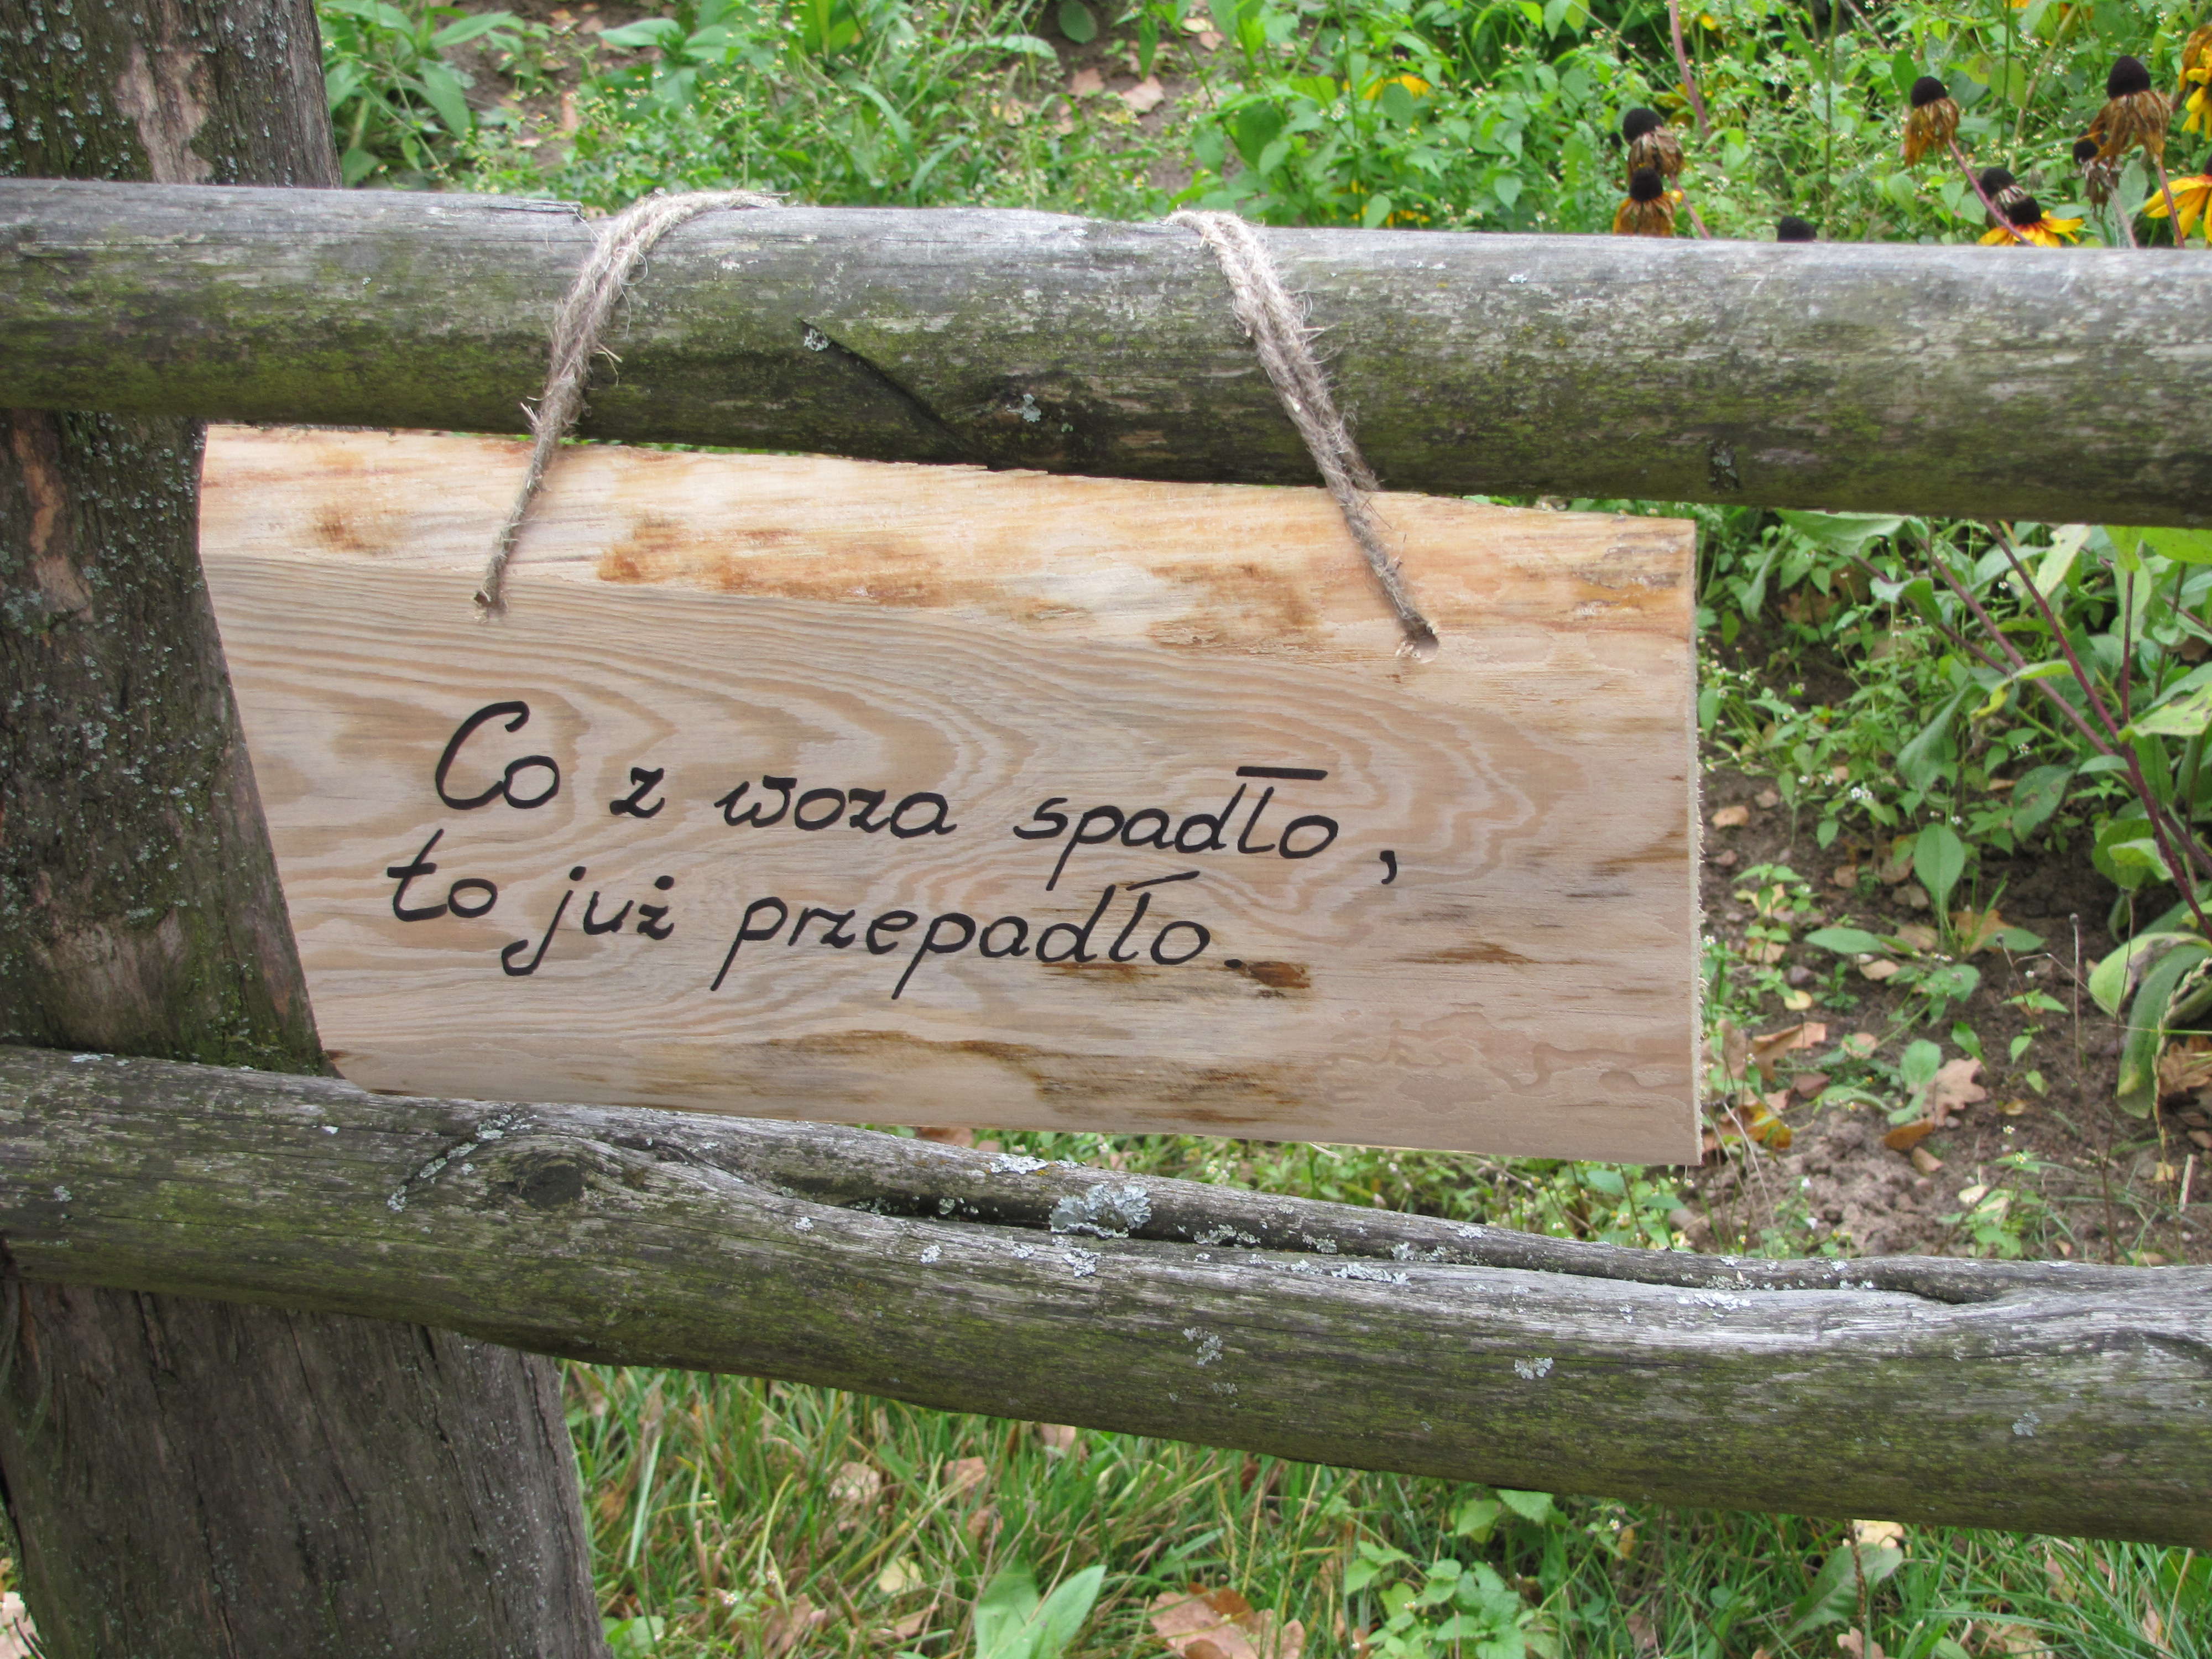 Co z woza spadło,
to już przepadło.